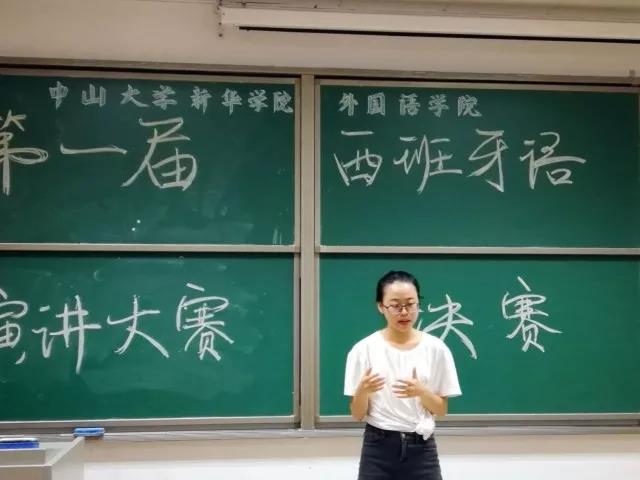 中山大学新华学院 外国语学院
第一届 西班牙语
演讲大赛 决赛